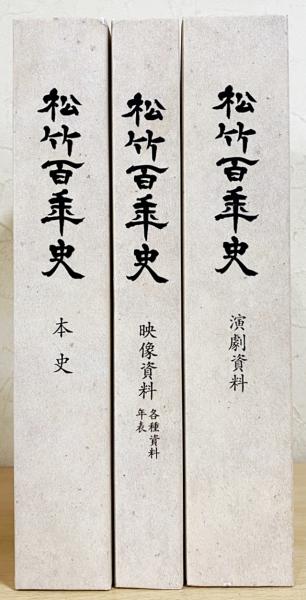 松竹百年史
本史
松竹百年史
映像資料
各種資料
年表
松竹百年史
演劇資料